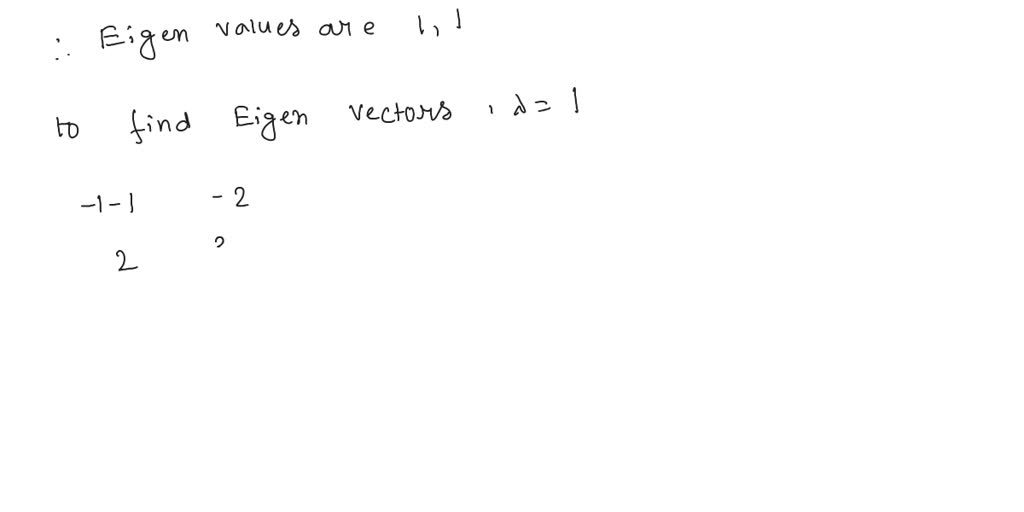 ∴ Eigen values are 1, 1
to find Eigen vectors, λ = 1
-1-1 -2
2